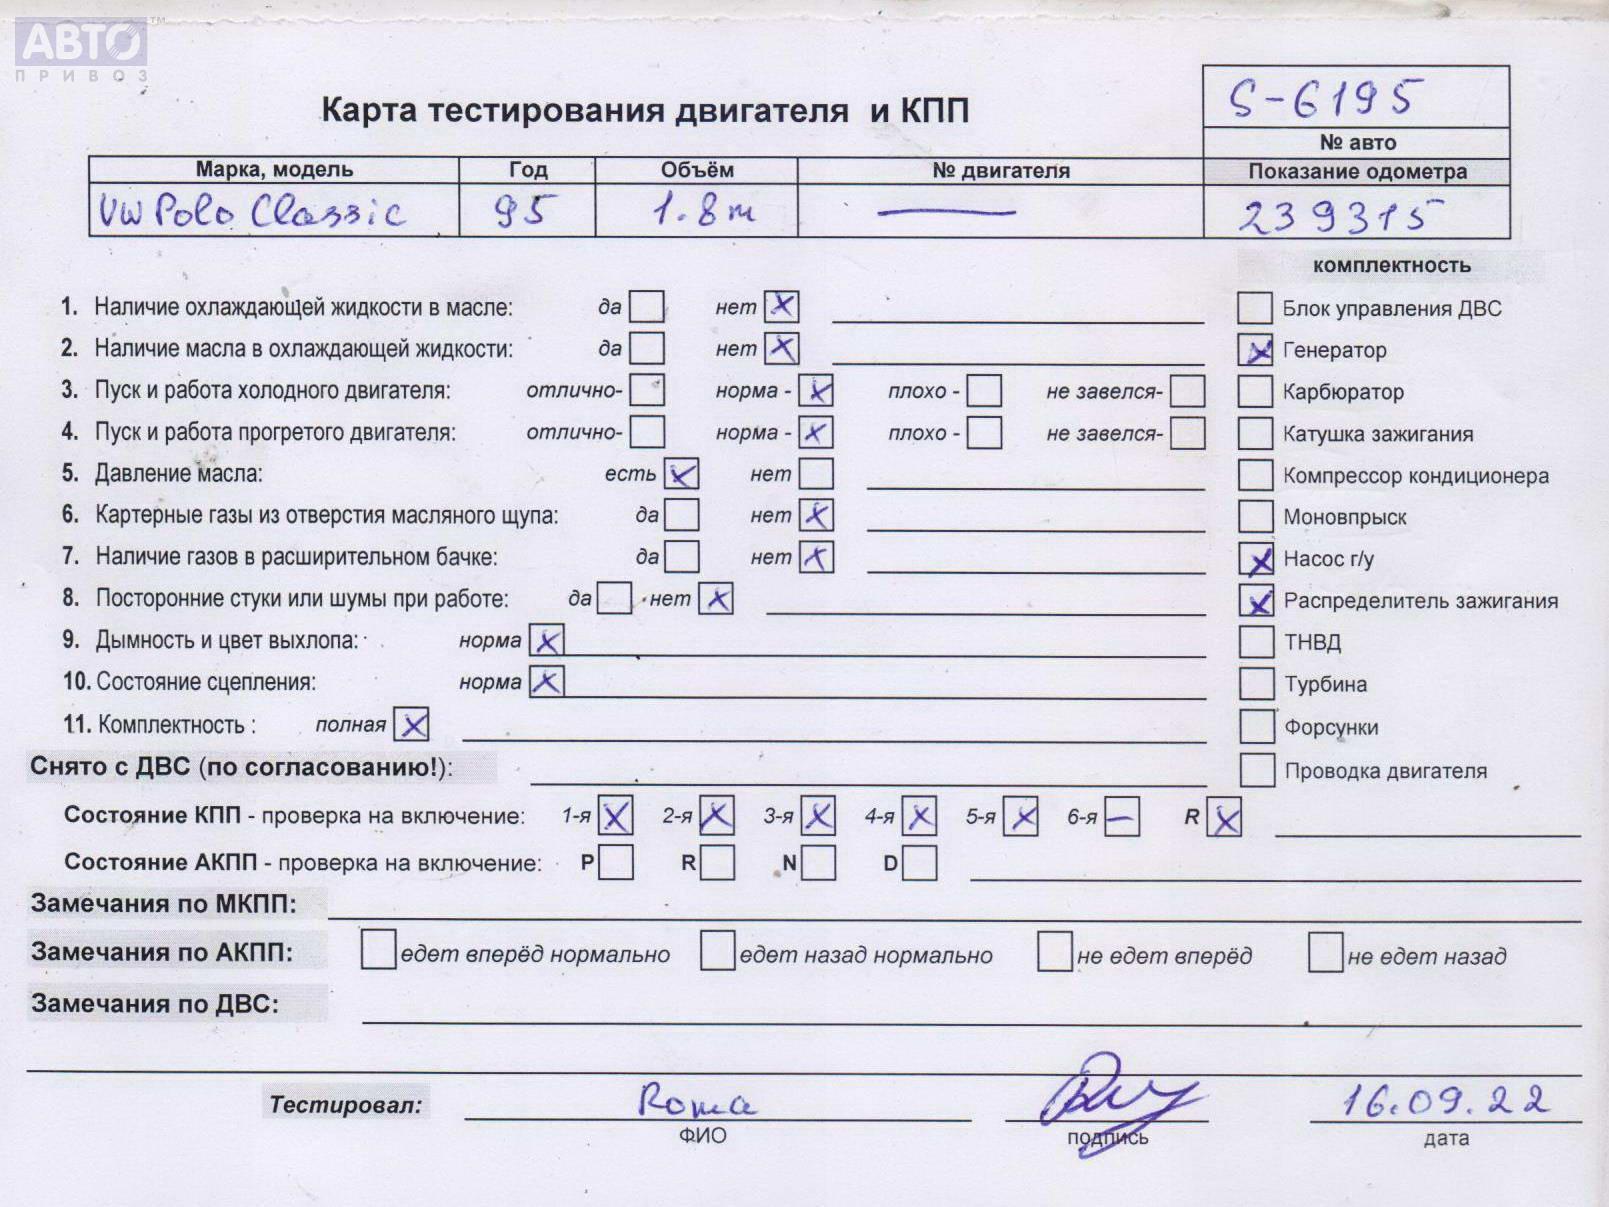 АВТО™
ПРИВОЗ
S-6195
Карта тестирования двигателя и КПП
№ авто
Марка, модель Год Объём № двигателя Показание одометра
VW Polo Classic 95 1.8m — 239315
комплектность
1. Наличие охлаждающей жидкости в масле: да нет X Блок управления ДВС
2. Наличие масла в охлаждающей жидкости: да нет X X Генератор
3. Пуск и работа холодного двигателя: отлично- норма - X плохо - не завелся- Карбюратор
4. Пуск и работа прогретого двигателя: отлично- норма - X плохо - не завелся- Катушка зажигания
5. Давление масла: есть X нет Компрессор кондиционера
6. Картерные газы из отверстия масляного щупа: да нет X Моновпрыск
7. Наличие газов в расширительном бачке: да нет X X Насос г/у
8. Посторонние стуки или шумы при работе: да нет X X Распределитель зажигания
9. Дымность и цвет выхлопа: норма X ТНВД
10. Состояние сцепления: норма X Турбина
11. Комплектность : полная X Форсунки
Снято с ДВС (по согласованию!): Проводка двигателя
Состояние КПП - проверка на включение: 1-я X 2-я X 3-я X 4-я X 5-я X 6-я — R X
Состояние АКПП - проверка на включение: P R N D
Замечания по МКПП:
Замечания по АКПП: едет вперёд нормально едет назад нормально не едет вперёд не едет назад
Замечания по ДВС:
Тестировал: Roma 16.09.22
ФИО подпись дата